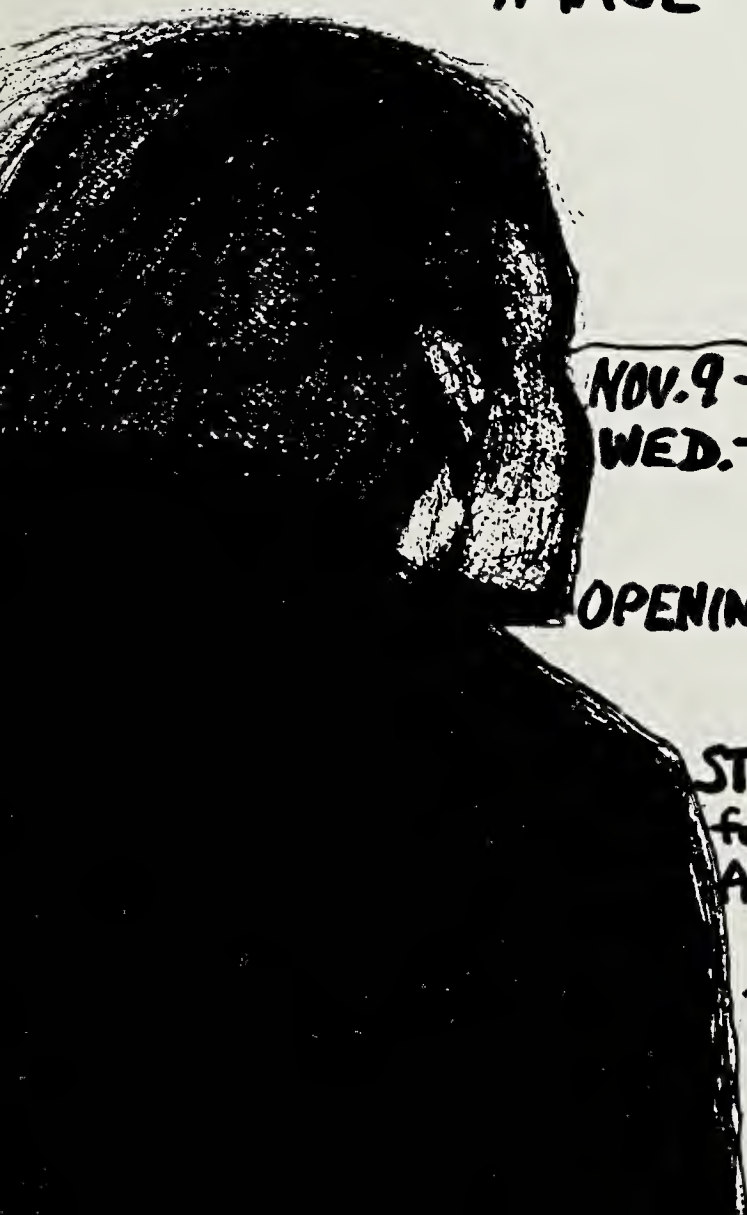 NOV.9-
WED.-
OPENIN
ST
fo
A